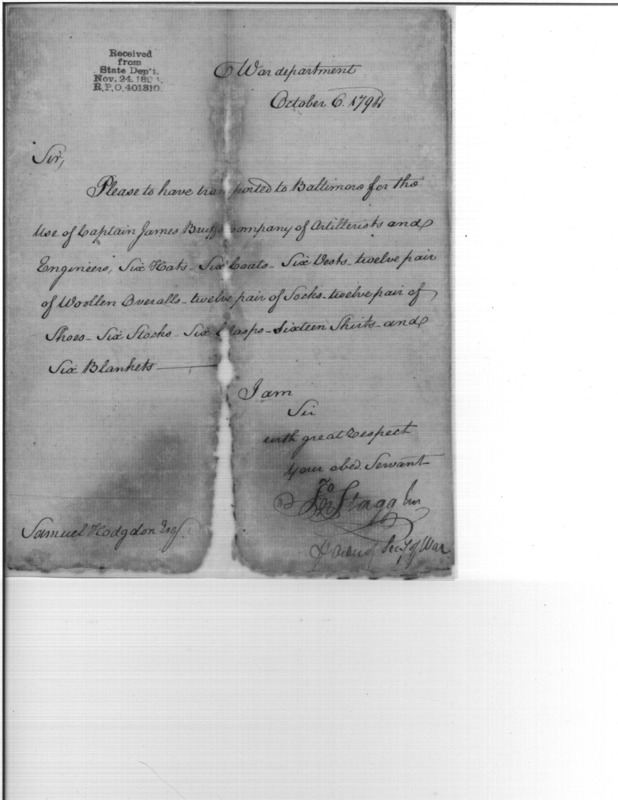 Received
from
State Dep't.
Nov. 24, 18
R.P.O. 401310.
War department
October 6. 1794
Sir,
Please to have tran ported to Baltimore for the
Use of Captain James Bruff Company of Artillerists and
Engineers, Six Hats - Six Coats - Six Vests - twelve pair
of Woollen Overalls - twelve pair of Socks - twelve pair of
Shoes - Six Stocks - Six Clasps - Sixteen Shirts - and
Six Blankets
I am
Sir
with great respect
your obed. Servant
Jno Stagg Jun
Samuel Hodgdon Esq.
Secy of War